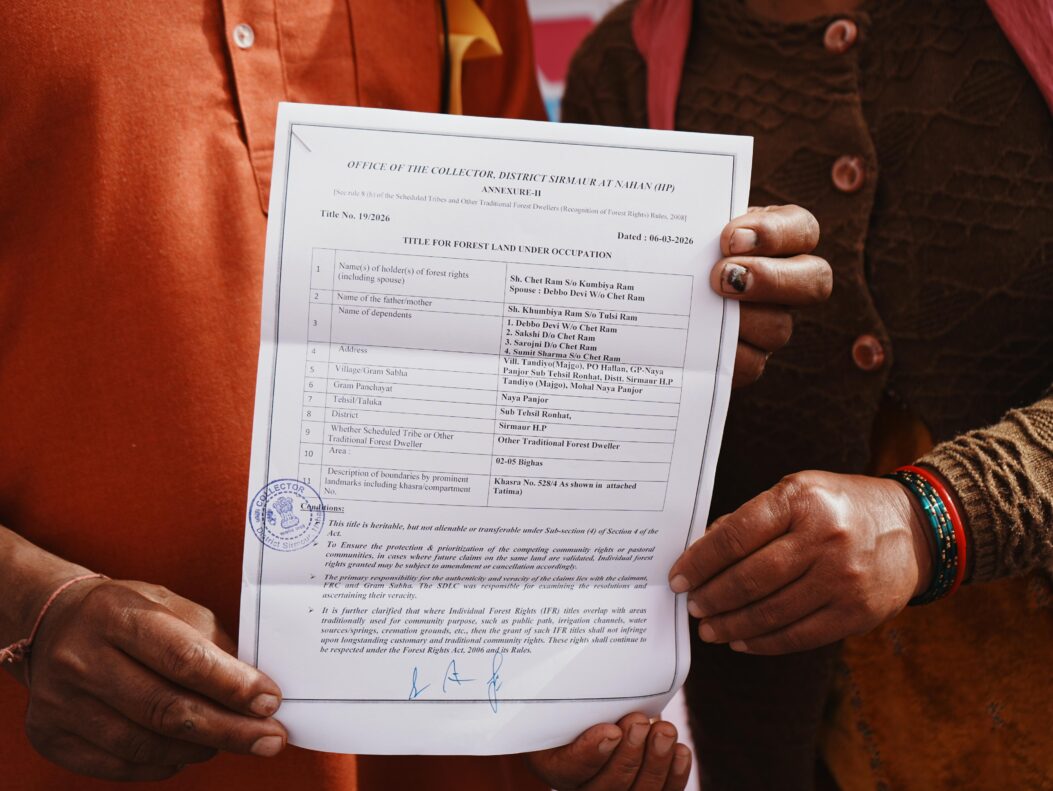 OFFICE OF THE COLLECTOR, DISTRICT SIRMAUR AT NAHAN (HP)
ANNEXURE-II
[See rule 8 (h) of the Scheduled Tribes and Other Traditional Forest Dwellers (Recognition of Forest Rights) Rules, 2008]
Title No. 19/2026
Dated : 06-03-2026
TITLE FOR FOREST LAND UNDER OCCUPATION
1 Name(s) of holder(s) of forest rights
(including spouse)
Sh. Chet Ram S/o Kumbiya Ram
Spouse : Debbo Devi W/o Chet Ram
2 Name of the father/mother
Sh. Khumbiya Ram S/o Tulsi Ram
3 Name of dependents
1. Debbo Devi W/o Chet Ram
2. Sakshi D/o Chet Ram
3. Sarojni D/o Chet Ram
4. Sumit Sharma S/o Chet Ram
4 Address
Vill. Tandiyo(Majgo), PO Hallan, GP-Naya
Panjor Sub Tehsil Ronhat, Distt. Sirmaur H.P
5 Village/Gram Sabha
Tandiyo (Majgo), Mohal Naya Panjor
6 Gram Panchayat
Naya Panjor
7 Tehsil/Taluka
Sub Tehsil Ronhat,
8 District
Sirmaur H.P
9 Whether Scheduled Tribe or Other
Traditional Forest Dweller
Other Traditional Forest Dweller
10 Area :
02-05 Bighas
11 Description of boundaries by prominent
landmarks including khasra/compartment
No.
Khasra No. 528/4 As shown in attached
Tatima)
COLLECTOR
District Sirmaur
Conditions:
This title is heritable, but not alienable or transferable under Sub-section (4) of Section 4 of the
Act.
To Ensure the protection & prioritization of the competing community rights or pastoral
communities, in cases where future claims on the same land are validated, Individual forest
rights granted may be subject to amendment or cancellation accordingly.
➢ The primary responsibility for the authenticity and veracity of the claims lies with the claimant,
FRC and Gram Sabha. The SDLC was responsible for examining the resolutions and
ascertaining their veracity.
➢ It is further clarified that where Individual Forest Rights (IFR) titles overlap with areas
traditionally used for community purpose, such as public path, irrigation channels, water
sources/springs, cremation grounds, etc., then the grant of such IFR titles shall not infringe
upon longstanding customary and traditional community rights. These rights shall continue to
be respected under the Forest Rights Act, 2006 and its Rules.